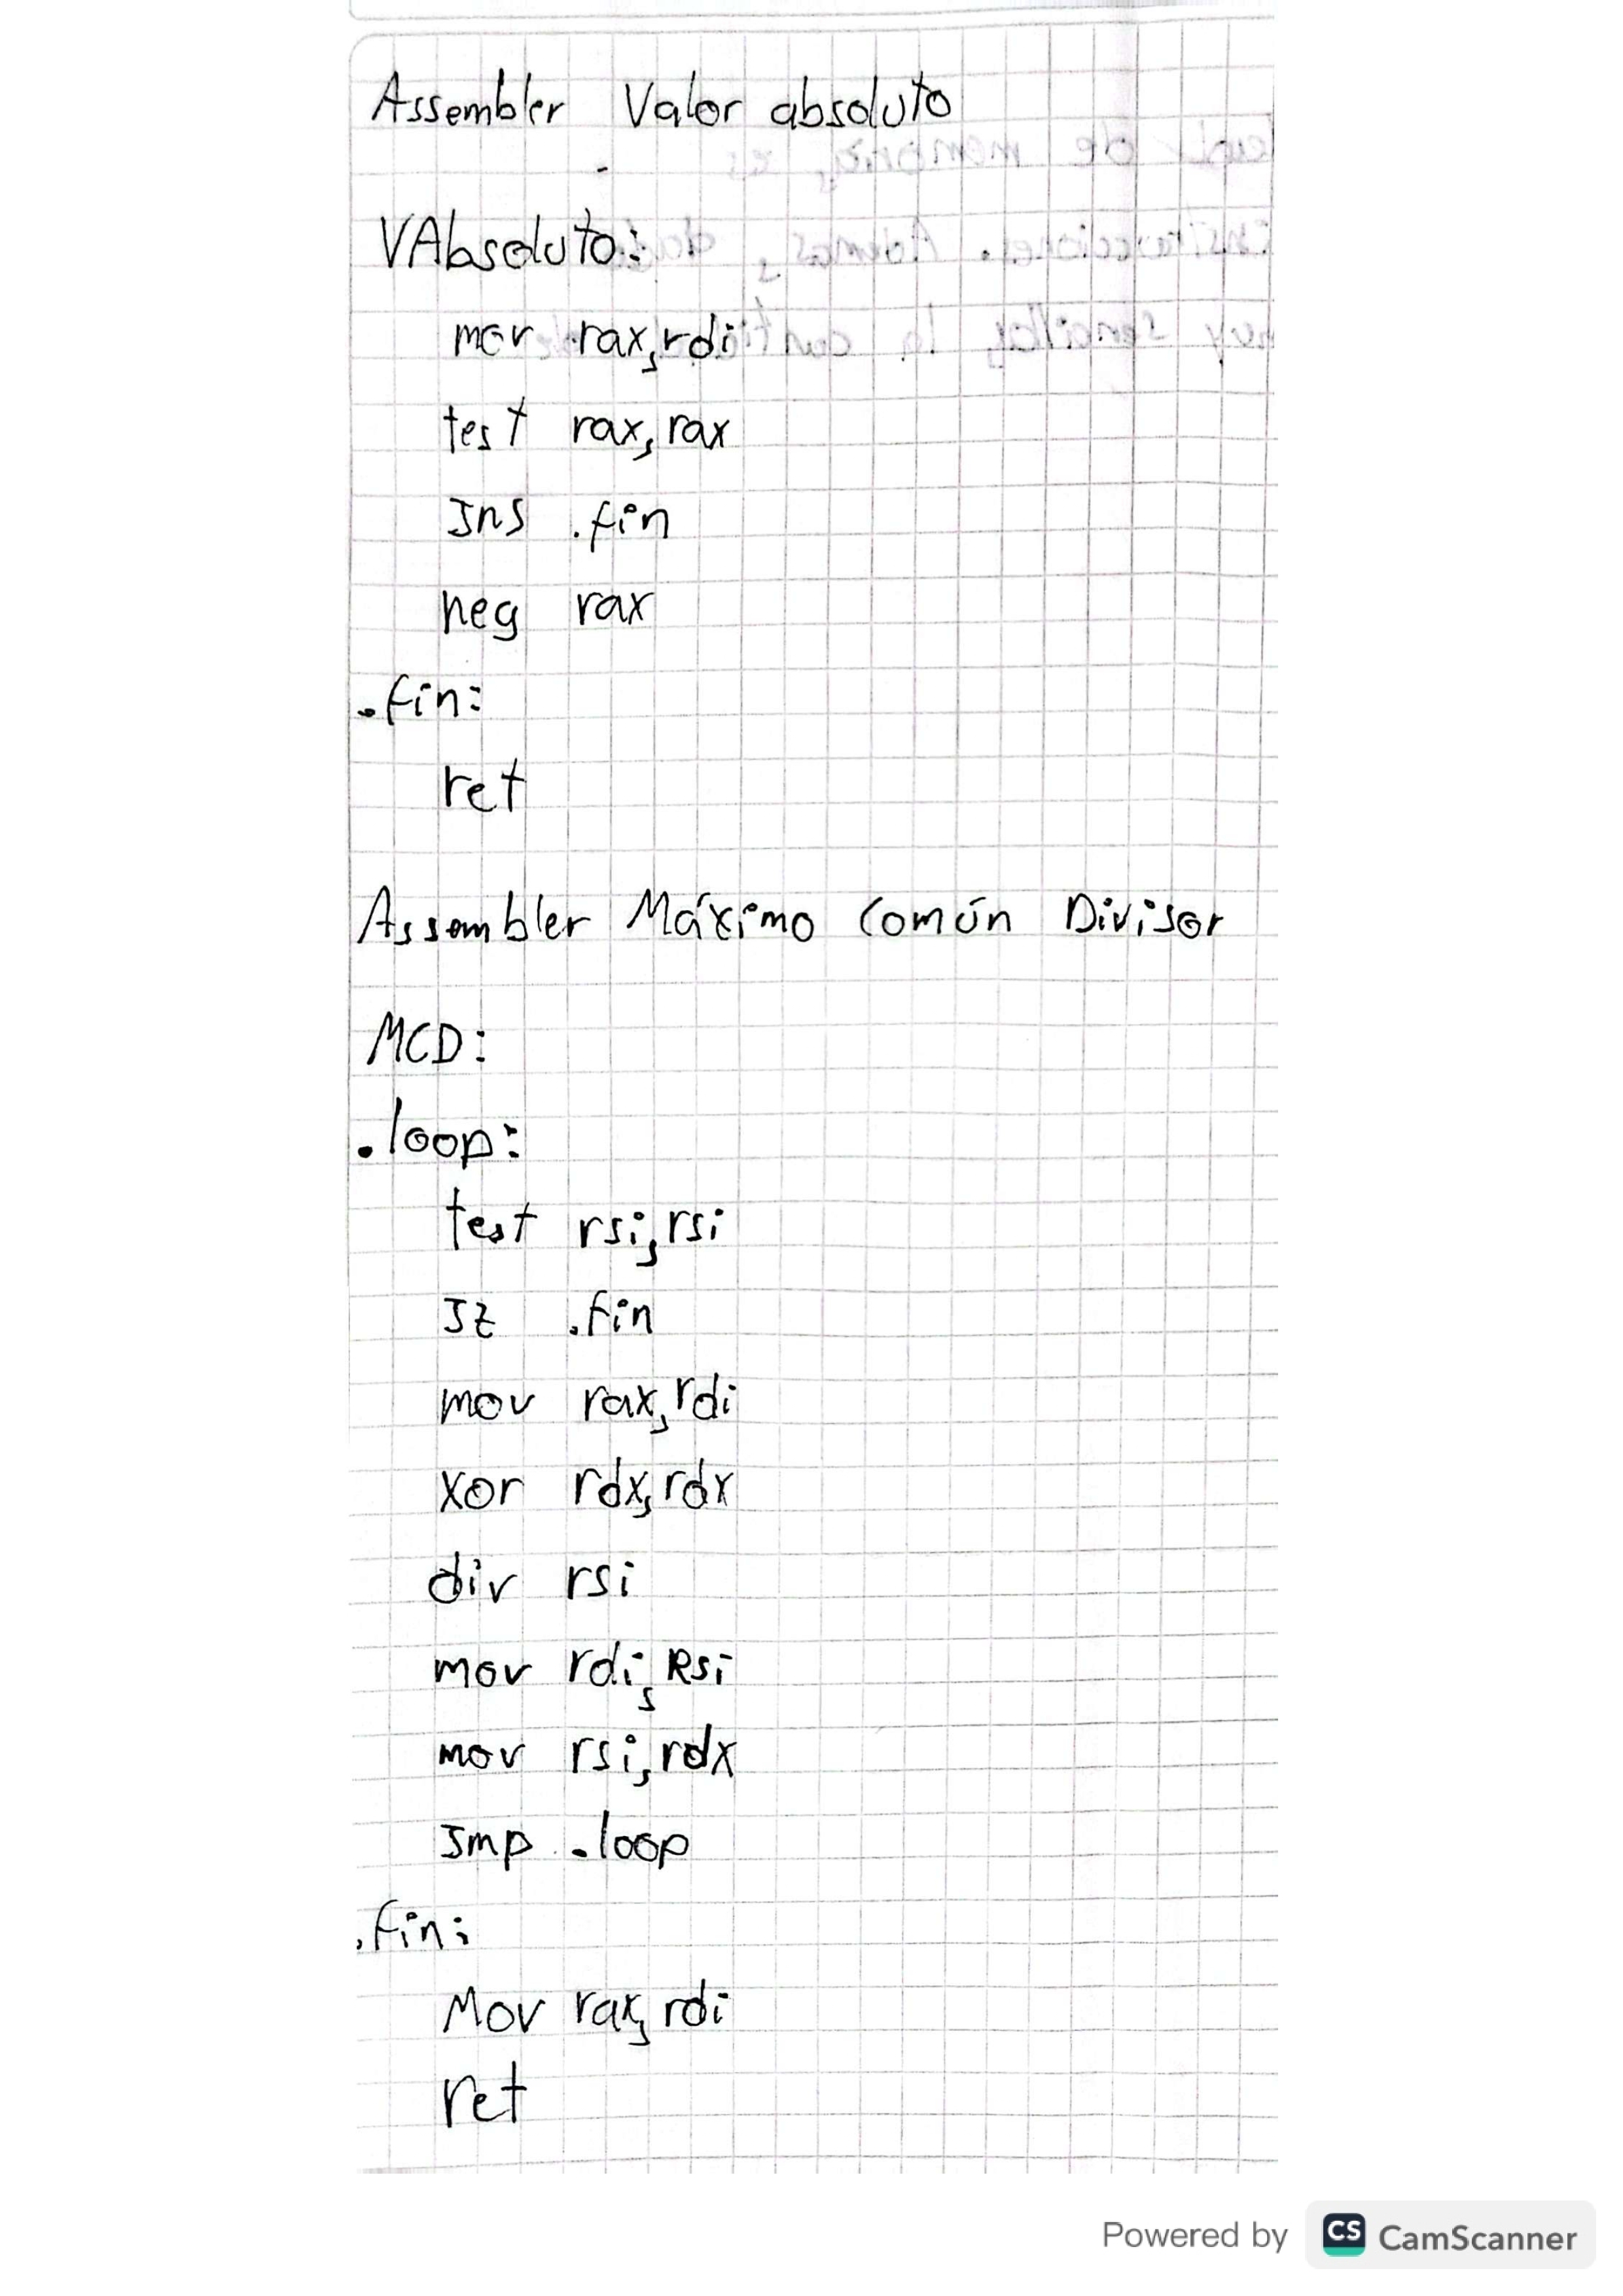 Assembler Valor absoluto
VAbsoluto:
mov rax,rdi
test rax,rax
Jns .fin
neg rax
.fin:
ret
Assembler Máximo Común Divisor
MCD:
.loop:
test rsi,rsi
Jz .fin
mov rax,rdi
xor rdx,rdx
div rsi
mov rdi,Rsi
mov rsi,rdx
Jmp .loop
.fin:
Mov rax,rdi
ret
Powered by CS CamScanner